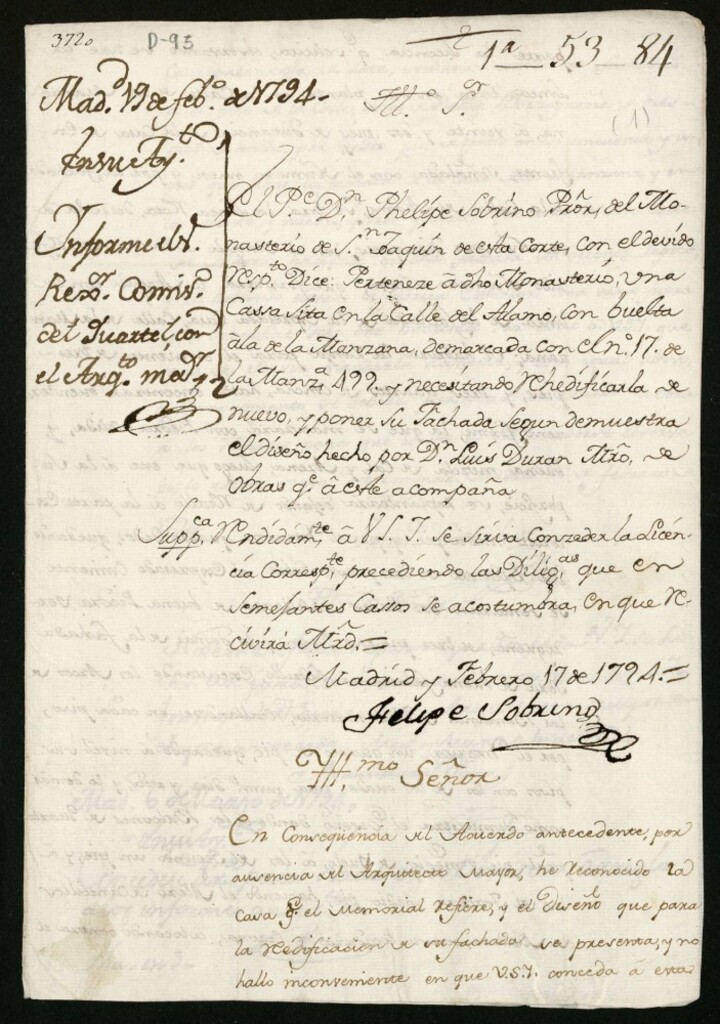 3720
D-93
1ª 53 84
(1)
Madᵈ 19 de febº de 1794.
Illº Sʳ
En su Aytº
Informe el Sʳ
Rexºʳ Comisº
del Quartel, con
el Arqtº maʸʳ
El Pᵉ Dⁿ Phelipe Sobrino Prōr, del Mo-
nasterio de Sⁿ Joaquin de esta Corte, con el devido
Respᵗº Dice: Perteneze â dho Monasterio, una
Cassa sita en la Calle del Alamo, con buelta
âla de la Manzana, demarcada con el nº 17. de
la Manzª 499. y necesitando Rehedificarla de
nuevo, y poner su Fachada segun demuestra
el diseño hecho por Dⁿ Luis Duran Mrō, de
Obras qᵉ â este acompaña
Suppᶜᵃ Rendidamᵗᵉ â V.S.I. se sirva conzeder la Licen-
cia Correspᵗᵉ precediendo las Diligᵃˢ que en
semejantes Cassos se acostumbra, en que Re-
civirá Mrd.=
Madrid y Febrero 17 de 1794.=
Felipe Sobrino
Illᵐº Señor
En Consequencia del Acuerdo antecedente, por
ausencia del Arquitecto Mayor, he reconocido la
Casa qᵉ el Memorial refiere, y el diseño que para
la redificacion de su fachada se presenta, y no
hallo inconveniente en que V.S.I. conceda â esta